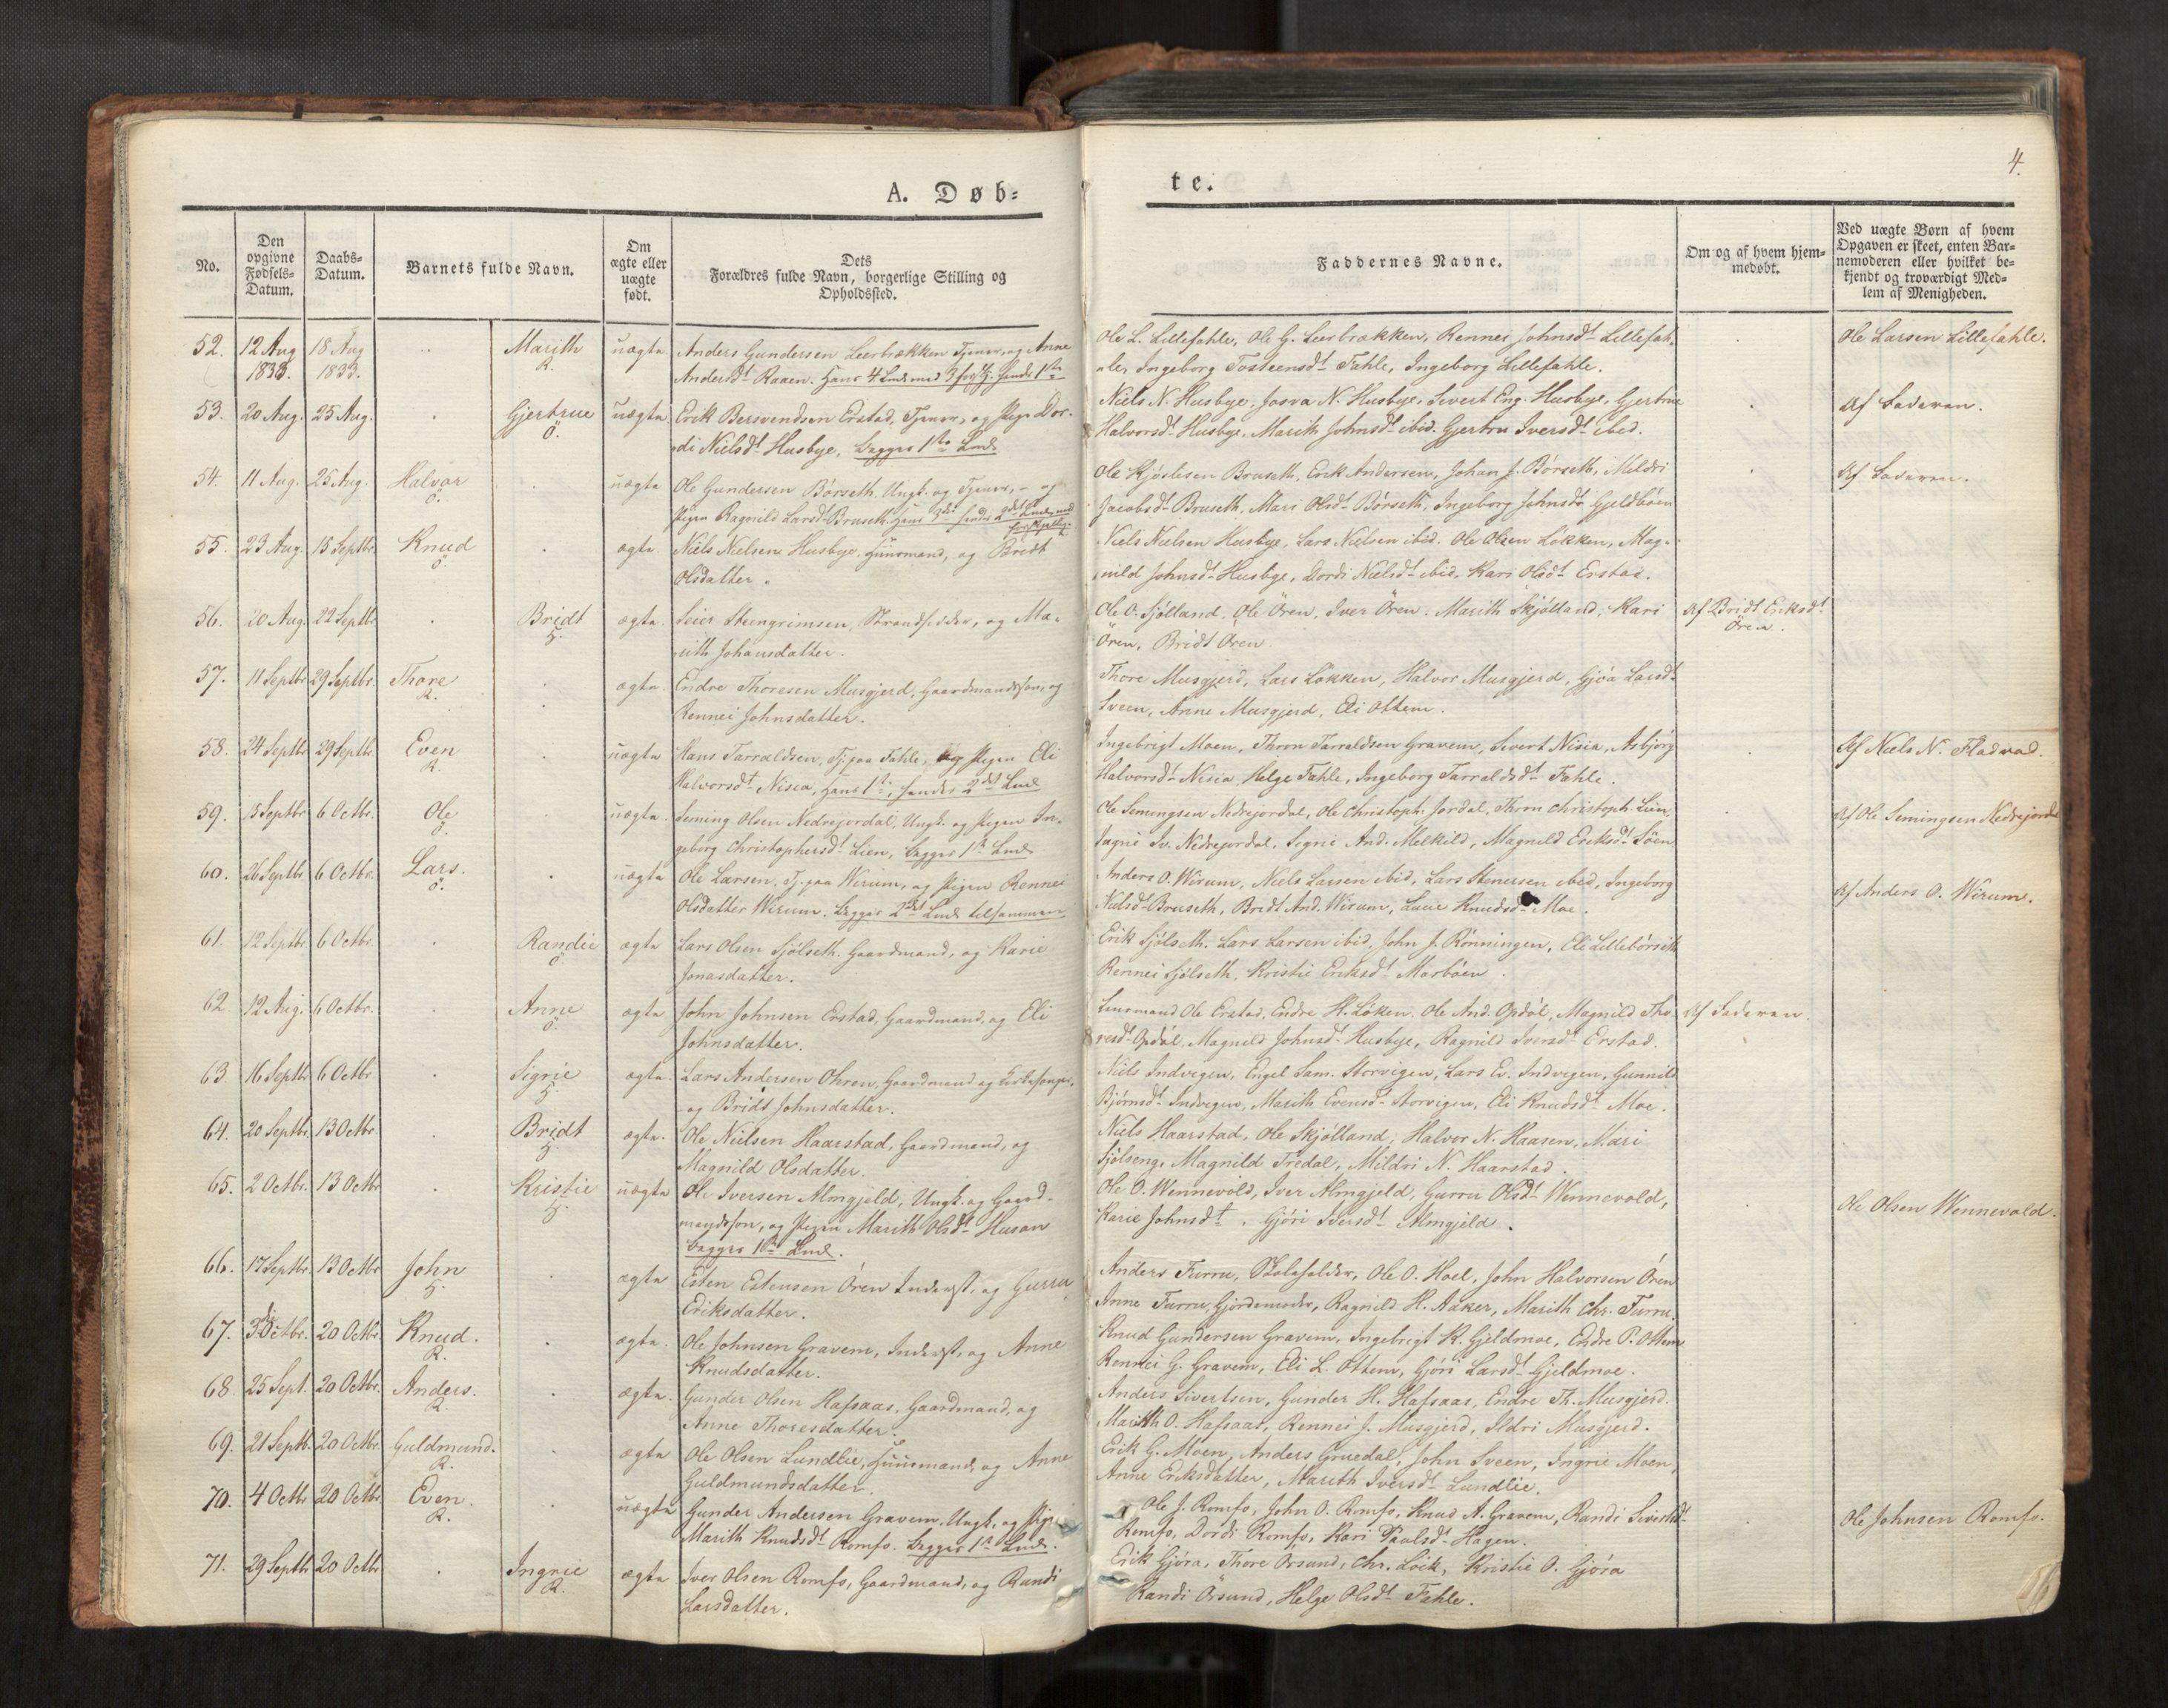 4.
A. Døb=
te.
No.
Den opgivne Fødsels=Datum.
Daabs=Datum.
Barnets fulde Navn.
Om ægte eller uægte født.
Dets Forældres fulde Navn, borgerlige Stilling og Opholdssted.
Faddernes Navne.
Om og af hvem hjem=medøbt.
Ved uægte Børn af hvem Opgaven er skeet, enten Bar=nemoderen eller hvilket be=kjendt og troværdigt Med=lem af Menigheden.
52. 12 Aug 1833. 18 Aug 1833. Marith R. uægte Anders Gundersen Leerbrækken Tjener, og Anne
Andersdt Raaen. Hans 4 Leie med 3 hendes 1ste
Ole L. Lillefahle, Ole G. Leerbrækken, Rennei Johnsdt Lillefah-
ale, Ingeborg Tosteensdt Fahle, Ingeborg Lillefahle.
Ole Larsen Lillefahle.
53. 20 Aug. 25 Aug. Gjertrue Ö. uægte Erik Bersvendsen Erstad, Tjener, og Pige Dor-
di Nielsdt Husbye, begges 1ste Leie
Niels N. Husbye, Josva N. Husbye, Sivert Eng. Husbye, Gjertrue
Halvorsdt Husbye, Marith Johnsdt ibid. Gjertru Iversdt ibid.
Af Faderen.
54. 11 Aug. 25 Aug. Halvor Ö. uægte Ole Gundersen Börseth, Ungk. og Tjener, og
Pigen Ragnild Larsdt Bruseth. Hans 3die hendes 2det Leie, med
Ole Kjöstesen Bruseth, Erik Andersen, Johan J. Börseth, Mildri
Jacobsdt Bruseth, Mari Olsdt Börseth, Ingeborg Johnsdt Gjeldböen
Af Faderen.
55. 23 Aug. 15 Septbr. Knud Ö. ægte. Niels Nielsen Husbye, Huusmand, og Bridt
Olsdatter.
Niels Nielsen Husbye, Lars Nielsen ibid. Ole Olsen Løkken, Mag-
nild Johnsdt Husbye, Dordi Nielsdt ibid, Kari Olsdt Erstad.
56. 20 Aug. 22 Septbr. Bridt H. ægte. Seier Steengrimsen, Strandsidder, og Ma-
rith Johansdatter.
Ole O. Sjölland, Ole Ören, Iver Ören. Marith Skjölland, Kari
Ören, Bridt Ören.
Af Bridt Eriksdt
Ören.
57. 11 Septbr. 29 Septbr. Thore R. ægte. Endre Thoresen Musgjerd, Gaardmandssön, og
Rennei Johnsdatter.
Thore Musgjerd, Lars Lökken, Halvor Musgjerd, Gjöa Larsdt
Sveen, Anne Musgjerd, Eli Ottem.
58. 24 Septbr. 29 Septbr. Even R. uægte Hans Tarraldsen, Tj. paa Fahle, og Pigen Eli
Halvorsdt Nisia, Hans 1ste, hendes 2det Leie
Ingebrigt Moen, Thron Tarraldsen Gravem, Sivert Nisia, Asbjörg
Halvorsdt Nisia, Helge Fahle, Ingeborg Tarraldsdt Fahle.
Af Niels N. Fladvad.
59. 15 Septbr. 6 Octbr. Ole Ö. uægte. Seming Olsen Nedrejordal, Ungk. og Pigen In-
geborg Christophersdt Lien, begges 1ste Leie
Ole Semingsen Nedrejordal, Ole Christoph. Jordal, Thron Christoph. Lien,
Ingrie Iv. Nedrejordal, Sigrie And. Melkild, Magnild Eriksdt Löen
Af Ole Semingsen Nedrejordal
60. 26 Septbr. 6 Octbr. Lars. Ö. uægte Ole Larsen, Tj. paa Wirum, og Pigen Rennei
Olsdatter Wirum. begges 2det Leie tilsammen
Anders O. Wirum, Niels Larsen ibid, Lars Stenersen ibid, Ingeborg
Nielsd. Bruseth, Bridt And. Wirum, Lucie Knudsdt Moe.
Af Anders O. Wirum.
61. 12 Septbr. 6 Octbr. Randie Ö. ægte Lars Olsen Sjölseth. Gaardmand, og Karie
Jonasdatter.
Erik Sjölseth. Lars Larsen ibid, John J. Rönningen, Eli Lilleborseth
Rennei Sjölseth, Kristie Eriksdt Morböen.
62. 12 Aug. 6 Octbr. Anne Ö. ægte John Johnsen Erstad, Gaardmand, og Eli
Johnsdatter.
Leensmand Ole Erstad, Endre H. Löken. Ole And. Opdöl, Magnild Tho-
resdt Opdöl, Magnild Johnsdt Husbye, Ragnild Iversdt Erstad.
Af Faderen.
63. 16 Septbr. 6 Octbr. Sigrie H. ægte. Lars Andersen Ohren, Gaardmand og
og Bridt Johnsdatter.
Niels Indvigen, Engel Sam. Storvigen, Lars Ev. Indvigen, Gunnild
Bjørnsdt Indvigen, Marith Evensdt Storvigen, Eli Knudsdt Moe.
64. 20 Septbr. 13 Octbr. Bridt H. ægte. Ole Nielsen Haarstad, Gaardmand, og
Magnild Olsdatter.
Niels Haarstad, Ole Skjölland, Halvor N. Haasen, Mari
Sjölseng, Magnild Tredal, Mildri N. Haarstad.
65. 2 Octbr. 13 Octbr. Kristie H. uægte Ole Iversen Almgjeld, Ungk. og Gaard-
mandssön, og Pigen Marith Olsdt Husan
begges 1ste Leie.
Ole O. Wennevold, Iver Almgjeld, Gurru Olsdt Wennevold,
Karie Johnsdt, Gjöri Iversdt Almgjeld.
Ole Olsen Wennevold.
66. 17 Septbr. 13 Octbr. John H. ægte Esten Estensen Ören Inderst, og Gurru
Eriksdatter.
Anders Furru, Skoleholder, Ole O. Hoel, John Halvorsen Ören
Anne Furru, Gjordemoder, Ragnild H. Aaker, Marith Chr. Furru.
67. 3die Octbr. 20 Octbr. Knud. R. ægte. Ole Johnsen Gravem, Inderst, og Anne
Knudsdatter.
Knud Gundersen Gravem, Ingebrigt K. Gjeldmoe, Endre P. Ottem
Rennei G. Gravem, Eli L. Ottem, Gjöri Larsdt Gjeldmoe.
68. 25 Sept. 20 Octbr. Anders. R. ægte. Gunder Olsen Hafsaas, Gaardmand, og
Anne Thoresdatter.
Anders Sivertsen, Gunder H. Hafsaas, Endre Th. Musgjerd.
Marith O. Hafsaas, Rennei J. Musgjerd, Ildri Musgjerd.
69. 21 Septb. 20 Octbr. Guldmund. R. ægte Ole Olsen Lundlie, Huusmand, og Anne
Guldmundsdatter.
Erik G. Moen, Anders Gruedal, John Sveen, Ingrie Moen,
Anne Eriksdatter, Marith Iversdt Lundlie.
70. 4 Octbr 20 Octbr. Even. R. uægte Gunder Andersen Gravem, Ungk. og Pige
Marith Knudsdt Romfo. begges 1ste Leie.
Ole J. Romfo, John O. Romfo, Knud A. Gravem, Randi Sivertsdt
Romfo, Dordi Romfo, Kari Paalsdt Hagen.
Ole Johnsen Romfo.
71. 29 Septbr 20 Octbr Ingrie R. ægte Iver Olsen Romfo, Gaardmand, og Randi
Larsdatter.
Erik Gjöra, Thore Orsund, Chr. Loik, Kristie O. Gjöra
Randi Örsund, Helge Olsdt Fahle.